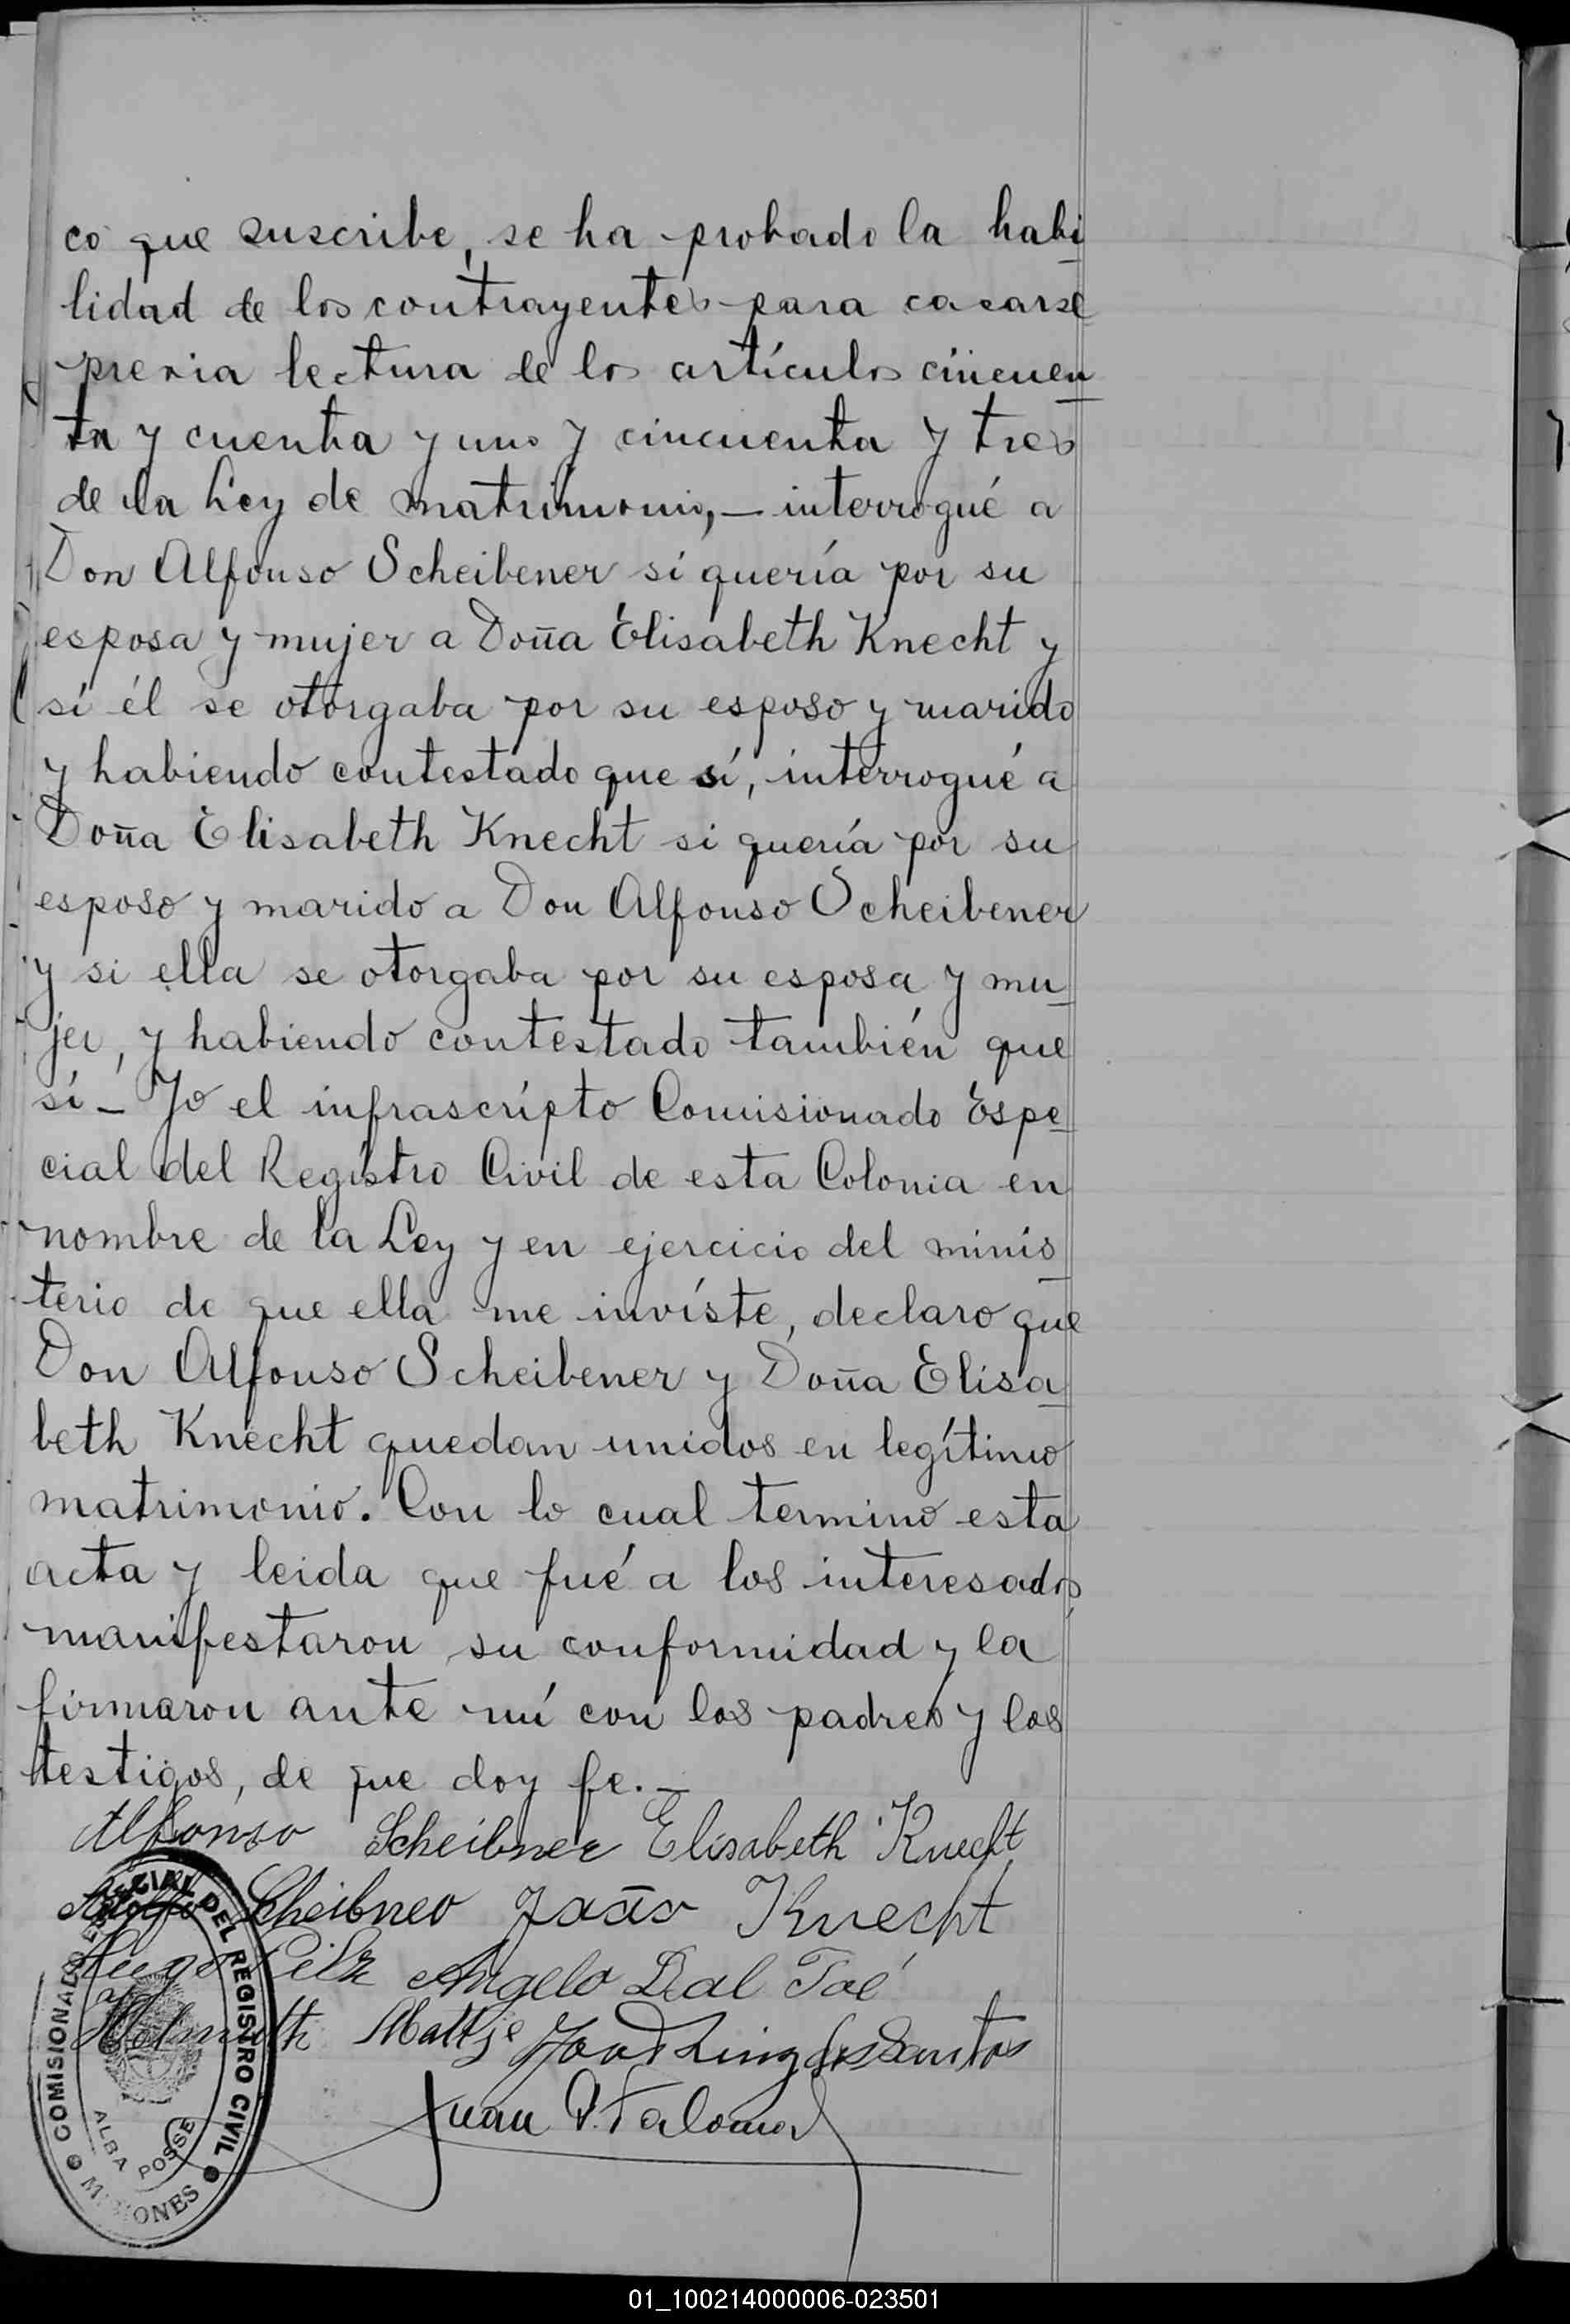 co que suscribe, se ha probado la habi
lidad de los contrayentes para casarse
previa lectura de los artículos cincuen
ta y cuenta y uno y cincuenta y tres
de la Ley de matrimonio, - interrogué a
Don Alfonso Scheibener si quería por su
esposa y mujer a Doña Elisabeth Knecht y
si él se otorgaba por su esposo y marido
y habiendo contestado que sí, interrogué a
Doña Elisabeth Knecht si quería por su
esposo y marido a Don Alfonso Scheibener
y si ella se otorgaba por su esposa y mu
jer, y habiendo contestado también que
sí - Yo el infrascripto Comisionado Espe
cial del Registro Civil de esta Colonia en
nombre de la Ley y en ejercicio del minis
terio de que ella me inviste, declaro que
Don Alfonso Scheibener y Doña Elisa
beth Knecht quedan unidos en legítimo
matrimonio. Con lo cual termino esta
acta y leida que fué a los interesados,
manifestaron su conformidad y la
firmaron ante mí con los padres y los
testigos, de que doy fe. -
Alfonso Scheibner Elisabeth Knecht
Adolfo Scheibner João Knecht
Hugo Pilz Angelo Dal Toé
Helmuth Mattje dos Santos
Juan Palomar
COMISIONADO ESPECIAL DEL REGISTRO CIVIL
ALBA POSSE
MISIONES
01_100214000006-023501